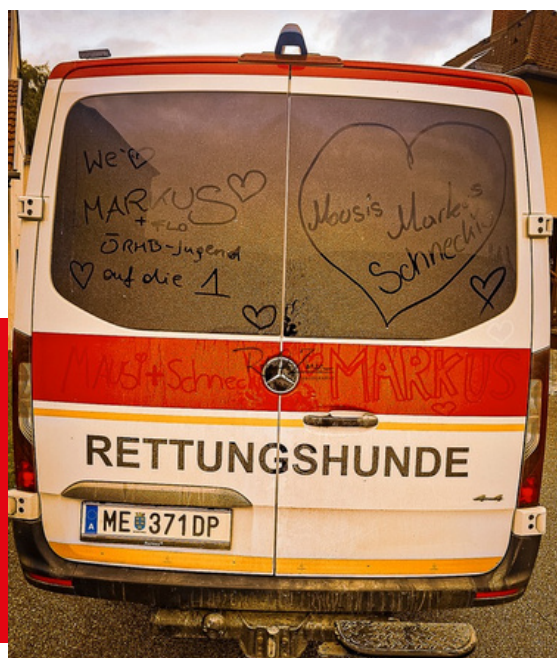 We
MARKUS
+ FLO
ÖRHB-Jugend
auf die 1
Mausis Markus
Schnecki
Mausi + Schnecki
MARKUS
RETTUNGSHUNDE
4x4
A ME 371DP